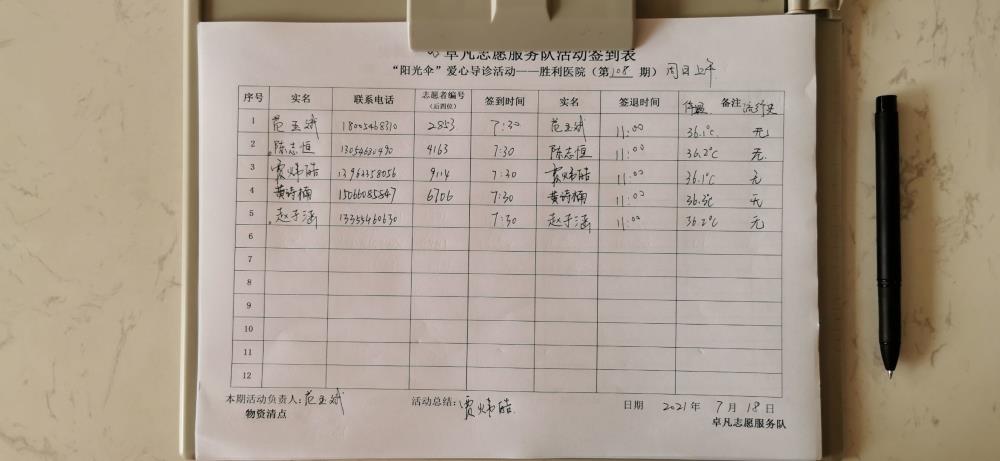 卓凡志愿服务队活动签到表
“阳光伞”爱心导诊活动——胜利医院（第108期）周日上午
序号 实名 联系电话 志愿者编号（后四位） 签到时间 实名 签退时间 体温 备注 流行史
1 范玉斌 18005468310 2853 7:30 范玉斌 11:00 36.1°C 无
2 陈志恒 13054630490 4163 7:30 陈志恒 11:00 36.2°C 无
3 贾炜皓 13963358056 9114 7:30 贾炜皓 11:00 36.1°C 无
4 黄诗楠 15066085847 6706 7:30 黄诗楠 11:00 36.3°C 无
5 赵于涵 13355460630 7:30 赵于涵 11:00 36.2°C 无
6
7
8
9
10
11
12
本期活动负责人：范玉斌 活动总结：贾炜皓 日期 2021年7月18日
物资清点 卓凡志愿服务队